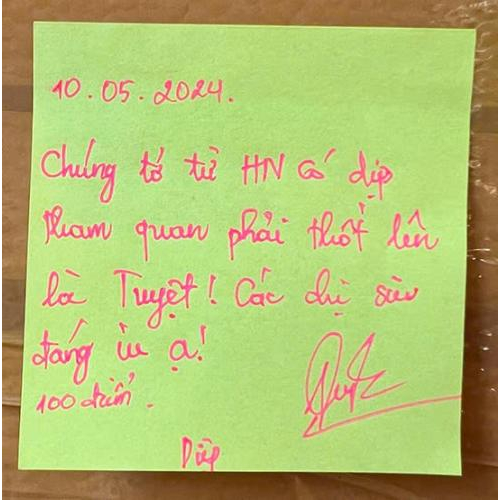 10.05.2024.
Chúng tớ từ HN có dịp
tham quan phải thốt lên
là Tuyệt! Các chị siu
đáng iu ạ!
100 điểm.
Diệp